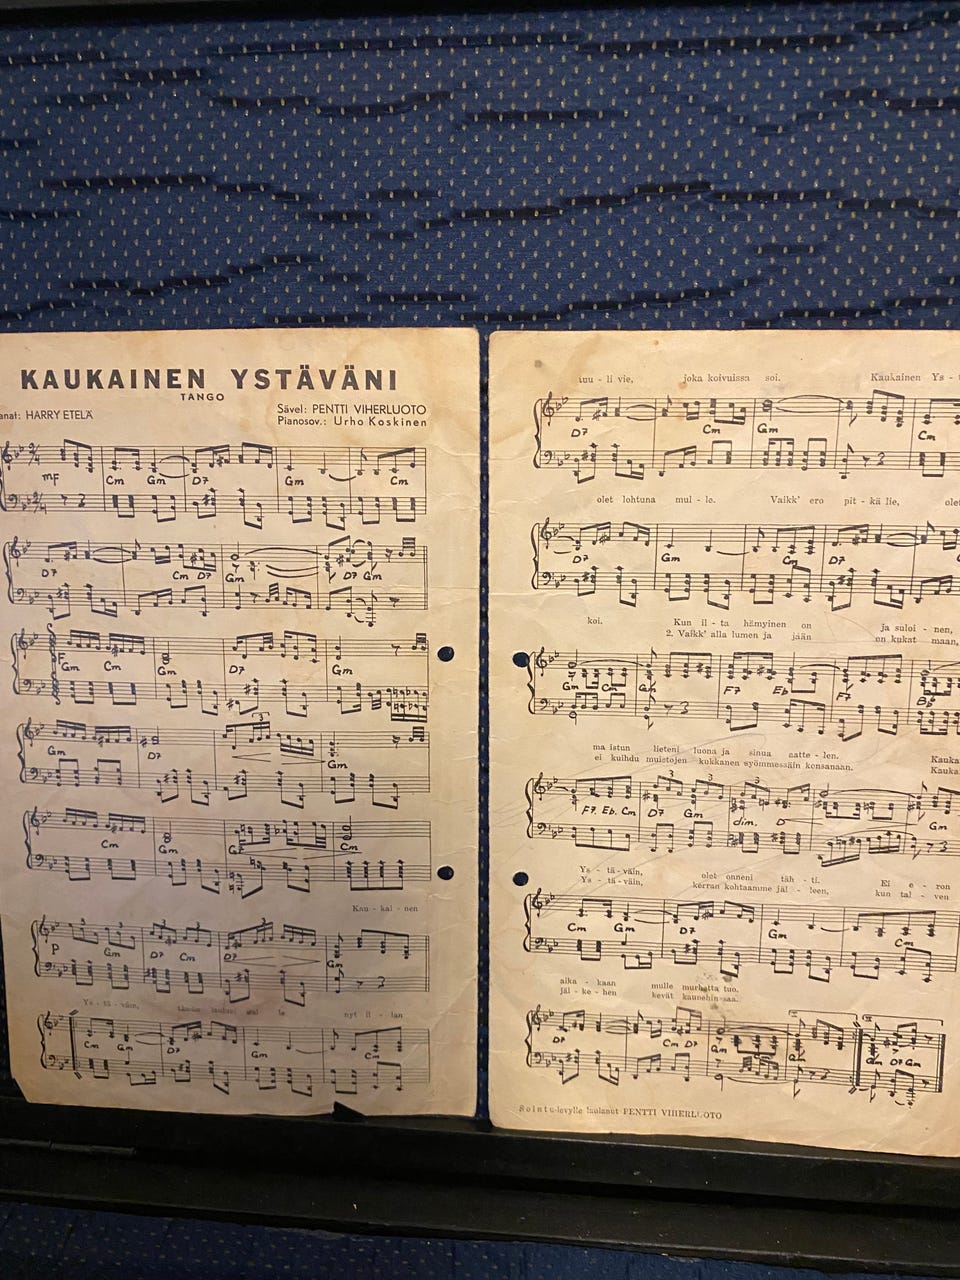 KAUKAINEN YSTÄVÄNI
TANGO
anat: HARRY ETELÄ
Sävel: PENTTI VIHERLUOTO
Pianosov.: Urho Koskinen
mF
Cm Gm D7 Gm Cm
D7 Cm D7 Gm D7 Gm
Gm Cm Gm D7 Gm
Gm D7 3 Gm
Cm Gm Cm
Kau - kai - nen
P 3 Gm 3 D7 3 Cm 3 D7 3
Ys - tä - väin, nyt il - lan
Cm Gm D7 Gm Cm
tuu - li vie, joka koivuissa soi. Kaukainen Ys -
D7 Cm Gm Cm
olet lohtuna mul - le. Vaikk' ero pit - kä lie, olet
D7 Gm Cm D7
koi. Kun il - ta hämyinen on ja suloi - nen,
2. Vaikk' alla lumen ja jään on kukat maan,
Gm Cm Gm F7 Eb F7
ma istun lieteni luona ja sinua aatte - len. Kauka
ei kuihdu muistojen kukkanen syömmessäin konsanaan. Kauka
F7 Eb Cm D7 3 Gm 3 dim. 3 D Gm
Ys - tä - väin, olet onneni täh - ti. Ei e - ron
Ys - tä - väin, kerran kohtaamme jäl - leen, kun tal - ven
Cm Gm D7 Gm Cm
aika - kaan mulle murhetta tuo.
jäl - ke - hen kevät kaunehin saa.
D7 Cm D7 Gm Gm Gm D7 Gm
Sointu-levylle laulanut PENTTI VIHERLUOTO